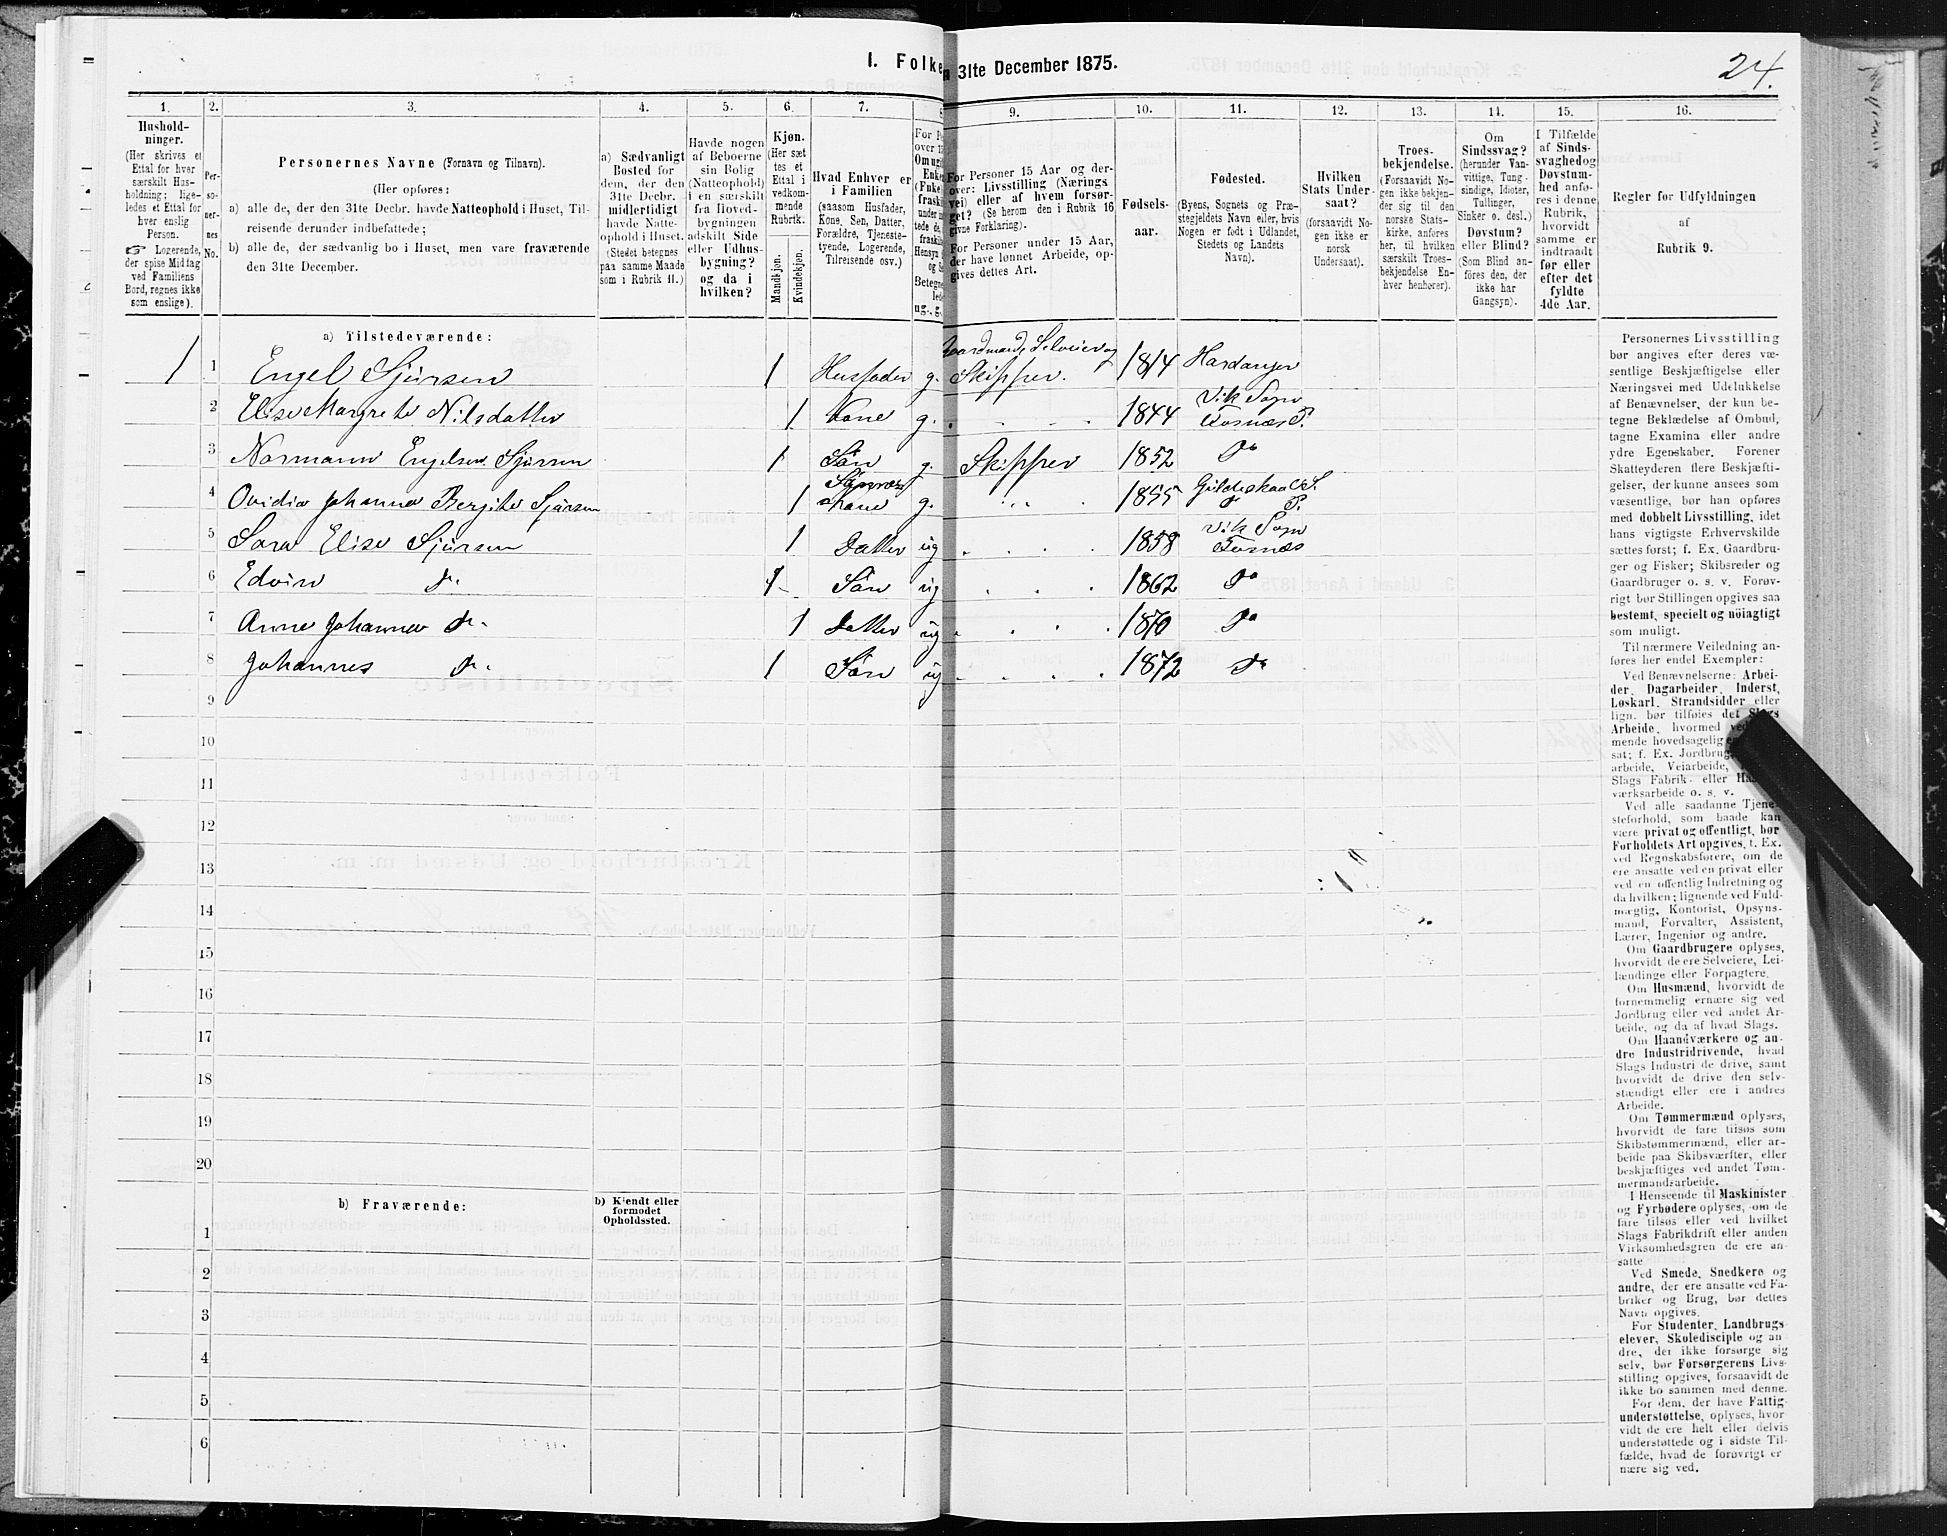 24.
I. Folke
31te December 1875.
1. 2. 3. 4. 5. 6. 7. 8 9. 10. 11. 12. 13. 14. 15. 16.
Hushold-
ninger.
(Her skrives et
Ettal for hver
særskilt Hus-
holdning; lige-
ledes et Ettal for
hver enslig
Person.
☞ Logerende,
der spise Middag
ved Familiens
Bord, regnes ikke
som enslige).
Per-
so-
ner-
nes
No.
Personernes Navne (Fornavn og Tilnavn).
(Her opføres:
a) alle de, der den 31te Decbr. havde Natteophold i Huset, Til-
reisende derunder indbefattede;
b) alle de, der sædvanlig bo i Huset, men vare fraværende
den 31te December.
a) Sædvanligt
Bosted for
dem, der den
31te Decbr.
midlertidigt
havde Natte-
ophold i Huset.
(Stedet betegnes
paa samme Maade
som i Rubrik 11.)
Havde nogen
af Beboerne
sin Bolig
(Natteophold)
i en særskilt
fra Hoved-
bygningen
adskilt Side
eller Udhus-
bygning?
og da i
hvilken?
Kjøn.
(Her sæt
tes et
Ettal i
vedkom-
mende
Rubrik.
Mandkjøn.
Kvindekjøn.
Hvad Enhver er
i Familien
(saasom Husfader,
Kone, Søn, Datter,
Forældre, Tjeneste-
tyende, Logerende,
Tilreisende osv.)
For Personer 15 Aar og der-
over: Livsstilling (Nærings
vei) eller af hvem forsør-
get? (Se herom den i Rubrik 16
givne Forklaring).
For Personer under 15 Aar,
der have lønnet Arbeide, op-
gives dettes Art.
Fødsels-
aar.
Fødested.
(Byens, Sognets og Præ-
stegjeldets Navn eller, hvis
Nogen er født i Udlandet,
Stedets og Landets
Navn).
Hvilken
Stats Under-
saat?
(forsaavidt No-
gen ikke er
norsk
Undersaat).
Troes-
bekjendelse.
(Forsaavidt No-
gen ikke bekjen-
der sig til den
norske Stats-
kirke, anføres
her, til hvilken
særskilt Troes-
bekjendelse En-
hver henhører).
Om
Sindssvag?
(herunder Van-
vittige, Tung-
sindige, Idioter,
Tullinger,
Sinker o. desl.)
Døvstum?
eller Blind?
(Som Blind an-
føres den, der
ikke har
Gangsyn).
I Tilfælde
af Sinds-
svaghedog
Døvstum-
hed anfø-
res i denne
Rubrik,
hvorvidt
samme er
indtraadt
før eller
efter det
fyldte
4de Aar.
Regler for Udfyldningen
af
Rubrik 9.
a) Tilstedeværende:
1 1 Engel Sjursen 1 Husfader g. Gaardmand, Selveier og Skipper. 1814 Hardanger
2 Elise Margrete Nilsdatter 1 Kone g. 1844 Vik Sogn Fosnæs P.
3 Normann Engelsen Sjursen 1 Søn g. Skipper 1852 Do
4 Ovidia Johanna Bergite Sjursen 1 Sønnens Kone g. 1855 Gildeskaal S. P.
5 Sara Elise Sjursen 1 Datter ug 1858 Vik Sogn Fosnæs
6 Edvin do. 1 Søn ug 1862 Do
7 Anne Johanna do. 1 Datter ug 1870 Do
8 Johannes do. 1 Søn ug 1872 Do
9
10
11
12
13
14
15
16
17
18
19
20
b) Fraværende:
b) Kjendt eller
formodet
Opholdssted.
1
2
3
4
5
6
Personernes Livsstilling
bør angives efter deres væ-
sentlige Beskjæftigelse eller
Næringsvei med Udelukkelse
af Benævnelser, der kun be-
tegne Beklædelse af Ombud,
tagne Examina eller andre
ydre Egenskaber. Forener
Skatteyderen flere Beskjæfti-
gelser, der kunne ansees som
væsentlige, bør han opføres
med dobbelt Livsstilling, idet
hans vigtigste Erhvervskilde
sættes først; f. Ex. Gaardbru-
ger og Fisker; Skibsreder og
Gaardbruger o. s. v. Forøv-
rigt bør Stillingen opgives saa
bestemt, specielt og nöiagtigt
som muligt.
Til nærmere Veiledning an-
føres her endel Exempler:
Ved Benævnelserne: Arbei-
der, Dagarbeider, Inderst,
Løskarl, Strandsidder eller
lign. bør tilføies det Slags
Arbeide, hvormed
mende hovedsagelig
sat; f. Ex. Jordbrug,
arbeide, Veiarbeide,
Slags Fabrik- eller
værksarbeide o. s. v.
Ved alle saadanne Tjene-
steforhold, som baade kan
være privat og offentligt, bør
Forholdets Art opgives, f. Ex.
ved Regnskabsførere, om de
ere ansatte ved en privat eller
ved en offentlig Indretning og
da hvilken; lignende ved Fuld-
mægtig, Kontorist, Opsyns-
mand, Forvalter, Assistent,
Lærer, Ingeniør og andre.
Om Gaardbrugere oplyses,
hvorvidt de ere Selveiere, Lei-
lændinge eller Forpagtere.
Om Husmænd, hvorvidt de
fornemmelig ernære sig ved
Jordbrug eller ved andet Ar-
beide, og da af hvad Slags.
Om Haandværkere og an-
dre Industridrivende, hvad
Slags Industri de drive, samt
hvorvidt de drive den selv-
stændigt eller ere i andres
Arbeide.
Om Tømmermænd oplyses,
hvorvidt de fare tilsøs som
Skibstømmermænd, eller ar-
beide paa Skibsværfter, eller
beskjæftiges ved andet Tøm-
mermandsarbeide.
I Henseende til Maskinister
og Fyrbødere oplyses, om de
fare tilsøs eller ved hvilket
Slags Fabrikdrift eller anden
Virksomhedsgren de ere an-
satte
Ved Smede, Snedkere og
andre, der ere ansatte ved Fa-
briker og Brug, bør dettes
Navn opgives.
For Studenter, Landbrugs-
elever, Skoledisciple og an-
dre, der ikke forsørge sig
selv, bør Forsørgerens Livs-
stilling opgives, forsaavidt de
ikke bo sammen med denne.
For dem, der have Fattig-
understøttelse, oplyses, hvor
vidt de ere helt eller delvis
understøttede og i sidste Til-
fælde, hvad de forøvrigt er
nære sig ved.